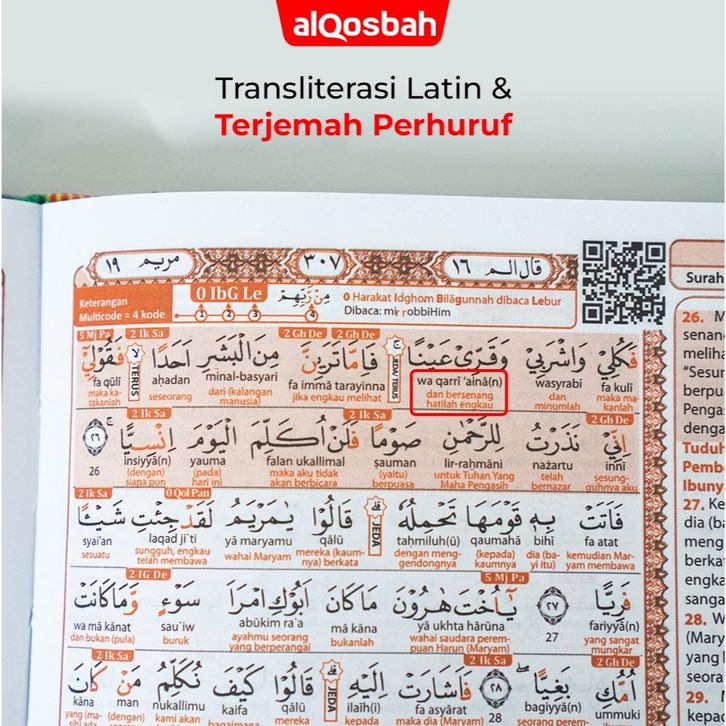 alQosbah
Transliterasi Latin &
Terjemah Perhuruf
مريم ١٩
٣٠٧
قال الم ١٦
Keterangan
Multicode = 4 kode
0 IbG Le
1 2 3 4
مِنْ رَّبِّهِمْ
0 Harakat Idghom Bilāgunnah dibaca Lebur
Dibaca: mir robbiHim
2 Gh De 2 Gh De 2 Ik Sa 5 Mj Pa
فَكُلِيْ وَاشْرَبِيْ وَقَرِّيْ عَيْنًا ۚ فَاِمَّا تَرَيِنَّ مِنَ الْبَشَرِ اَحَدًا ۙ فَقُوْلِيْٓ
JEDA/ TERUS TERUS
fa kulī wasyrabī wa qarrī ‘ainā(n) fa immā tarayinna minal-basyari aḥadan fa qūlī
maka ma- dan dan bersenang jika engkau melihat dari (kalangan seseorang maka ka-
kanlah minumlah hatilah engkau manusia) takanlah
2 Gh De 2 Ik Sa 2 Ik Sa
اِنِّيْ نَذَرْتُ لِلرَّحْمٰنِ صَوْمًا فَلَنْ اُكَلِّمَ الْيَوْمَ اِنْسِيًّا ۚ ٢٦
innī nażartu lir-raḥmāni ṣauman falan ukallimal yauma insiyyā(n) 26
sesung- telah untuk Tuhan Yang (yaitu) maka aku tidak (pada) (dengan)
guhnya aku bernazar Maha Pengasih berpuasa akan berbicara hari ini siapa pun
0 Qol Pan 2 Ik Sa
فَاَتَتْ بِهٖ قَوْمَهَا تَحْمِلُهٗ ۗ قَالُوْا يٰمَرْيَمُ لَقَدْ جِئْتِ شَيْـًٔا
JEDA
fa atat bihī qaumahā taḥmiluh(ū) qālū yā maryamu laqad ji'ti syai'an
kemudian Mar- dia (ba- (kepada) dengan meng- mereka (kaum- wahai Maryam sungguh, engkau sesuatu
yam membawa yi itu) kaumnya gendongnya nya) berkata telah membawa
5 Mj Pa 2 IG De
فَرِيًّا ٢٧ يٰٓاُخْتَ هٰرُوْنَ مَا كَانَ اَبُوْكِ امْرَاَ سَوْءٍ وَّمَا كَانَتْ
fariyyā(n) 27 yā ukhta hārūna mā kāna abūkim ra'a sau'iw wa mā kānat
yang sangat wahai saudara perem- bukanlah ayahmu seorang buruk dan bukan (pula)
mungkar puan Harun (Maryam) yang berperangai
2 Gh De 2 Ik Sa 2 Ik Sa
اُمُّكِ بَغِيًّا ۖ ٢٨ فَاَشَارَتْ اِلَيْهِ ۗ قَالُوْا كَيْفَ نُكَلِّمُ مَنْ كَانَ
JEDA
ummuki bagiyyā(n) 28 fa asyārat ilaīh(i) qālū kaifa nukallimu man kāna
ibumu seorang perem- maka dia (Mar- kepada mereka bagaimana kami akan (dengan) yang (ma-
Surah
26.
senan
meliha
“Sesur
berpua
Penga
denga
Tuduh
Pemb
Ibuny
27. Ke
dia (ba
meng
berkat
engka
sanga
28. W
(Mary
yang
ibumu
29.
kepad